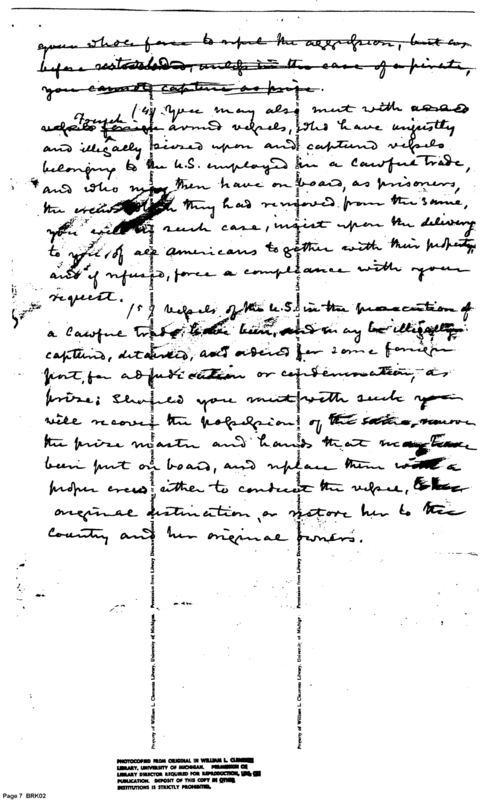 your whole force to repel the aggression, but as
before restricted, unless in the case of a pirate,
you cannot capture as prize.
Fourth / You may also meet with
vessels foreign armed vessels, who have unjustly
and illegally seized upon and captured vessels
belonging to the U.S. employed in a lawful trade,
and who may then have on board, as prisoners,
the crews they had removed from the same,
you will in such case, insist upon the delivery
to you, of all Americans together with their property,
and if refused, force a compliance with your
request.
/5/ Vessels of the U.S. in the prosecution of
a lawful trade have been, and may be illegally
captured, detained, and ordered for some foreign
port, for adjudication or condemnation, as
prize; Should you meet with such you
will recover the possession of the same, remove
the prize master and hands that may have
been put on board, and replace them with a
proper crew, either to conduct the vessel, to her
original destination, or restore her to the
Country and her original owners.
Property of William L. Clements Library, University of Michigan. Permission from Library Director
Property of William L. Clements Library, University of Michigan. Permission from Library Director
PHOTOCOPIED FROM ORIGINAL IN WILLIAM L. CLEMENTS
LIBRARY, UNIVERSITY OF MICHIGAN. PERMISSION OF
LIBRARY DIRECTOR REQUIRED FOR REPRODUCTION, OR
PUBLICATION. DEPOSIT OF THIS COPY IN OTHER
INSTITUTIONS IS STRICTLY PROHIBITED.
Page 7 BRK02